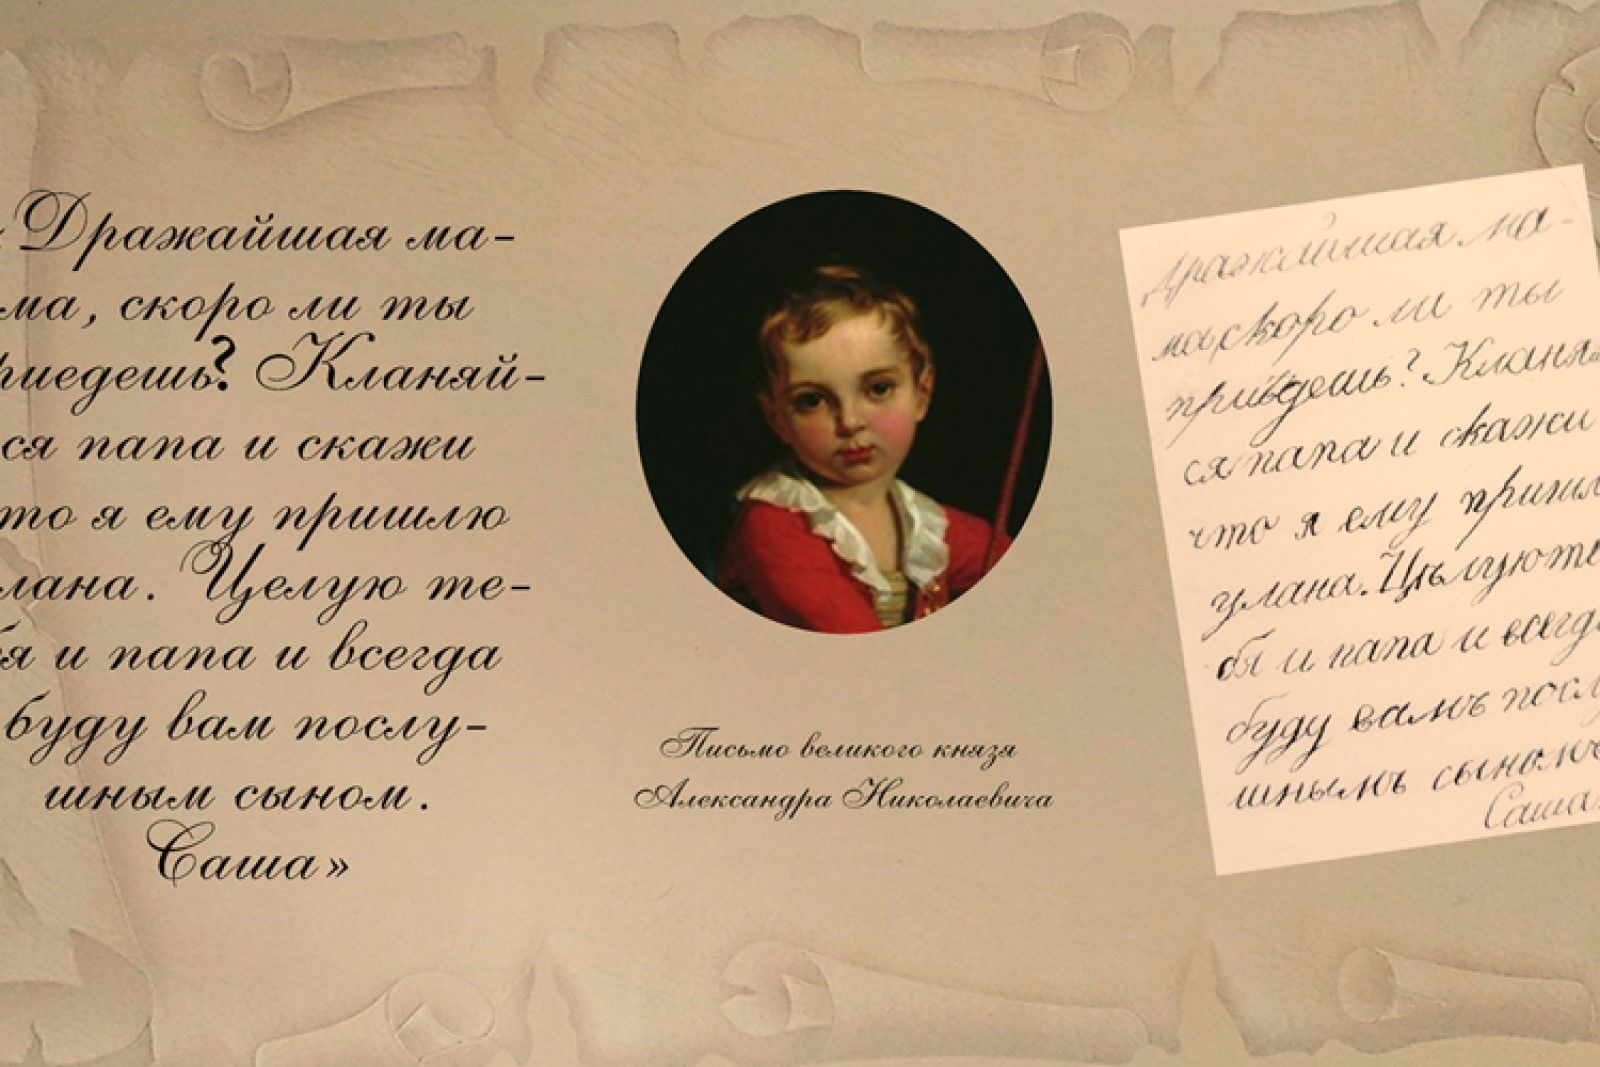 «Дражайшая ма-
ма, скоро ли ты
приедешь? Кланяй-
ся папа и скажи
что я ему пришлю
улана. Целую те-
бя и папа и всегда
буду вам послу-
шным сыном.
Саша»
Письмо великого князя
Александра Николаевича
Дражайшая ма-
ма, скоро ли ты
приѣдешь? Кланяй
ся папа и скажи
что я ему пришл
улана. Цѣлую те
бя и папа и всегда
буду вамъ послу
шнымъ сыномъ
Саша